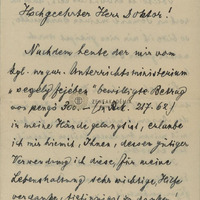 Hochgeehrter Herr Doktor!
Nachdem heute der mir vom
kgl. ungar. Unterrichtsministerium
"segély fejében" bewilligte Betrag
von pengő 300.–
in meine Hände gelangt ist, erlaube
ich mir hiemit, Ihnen, dessen gütiger
Verwendung ich diese, für meine
Lebenshaltung sehr wichtige, Hilfe
verdanke,